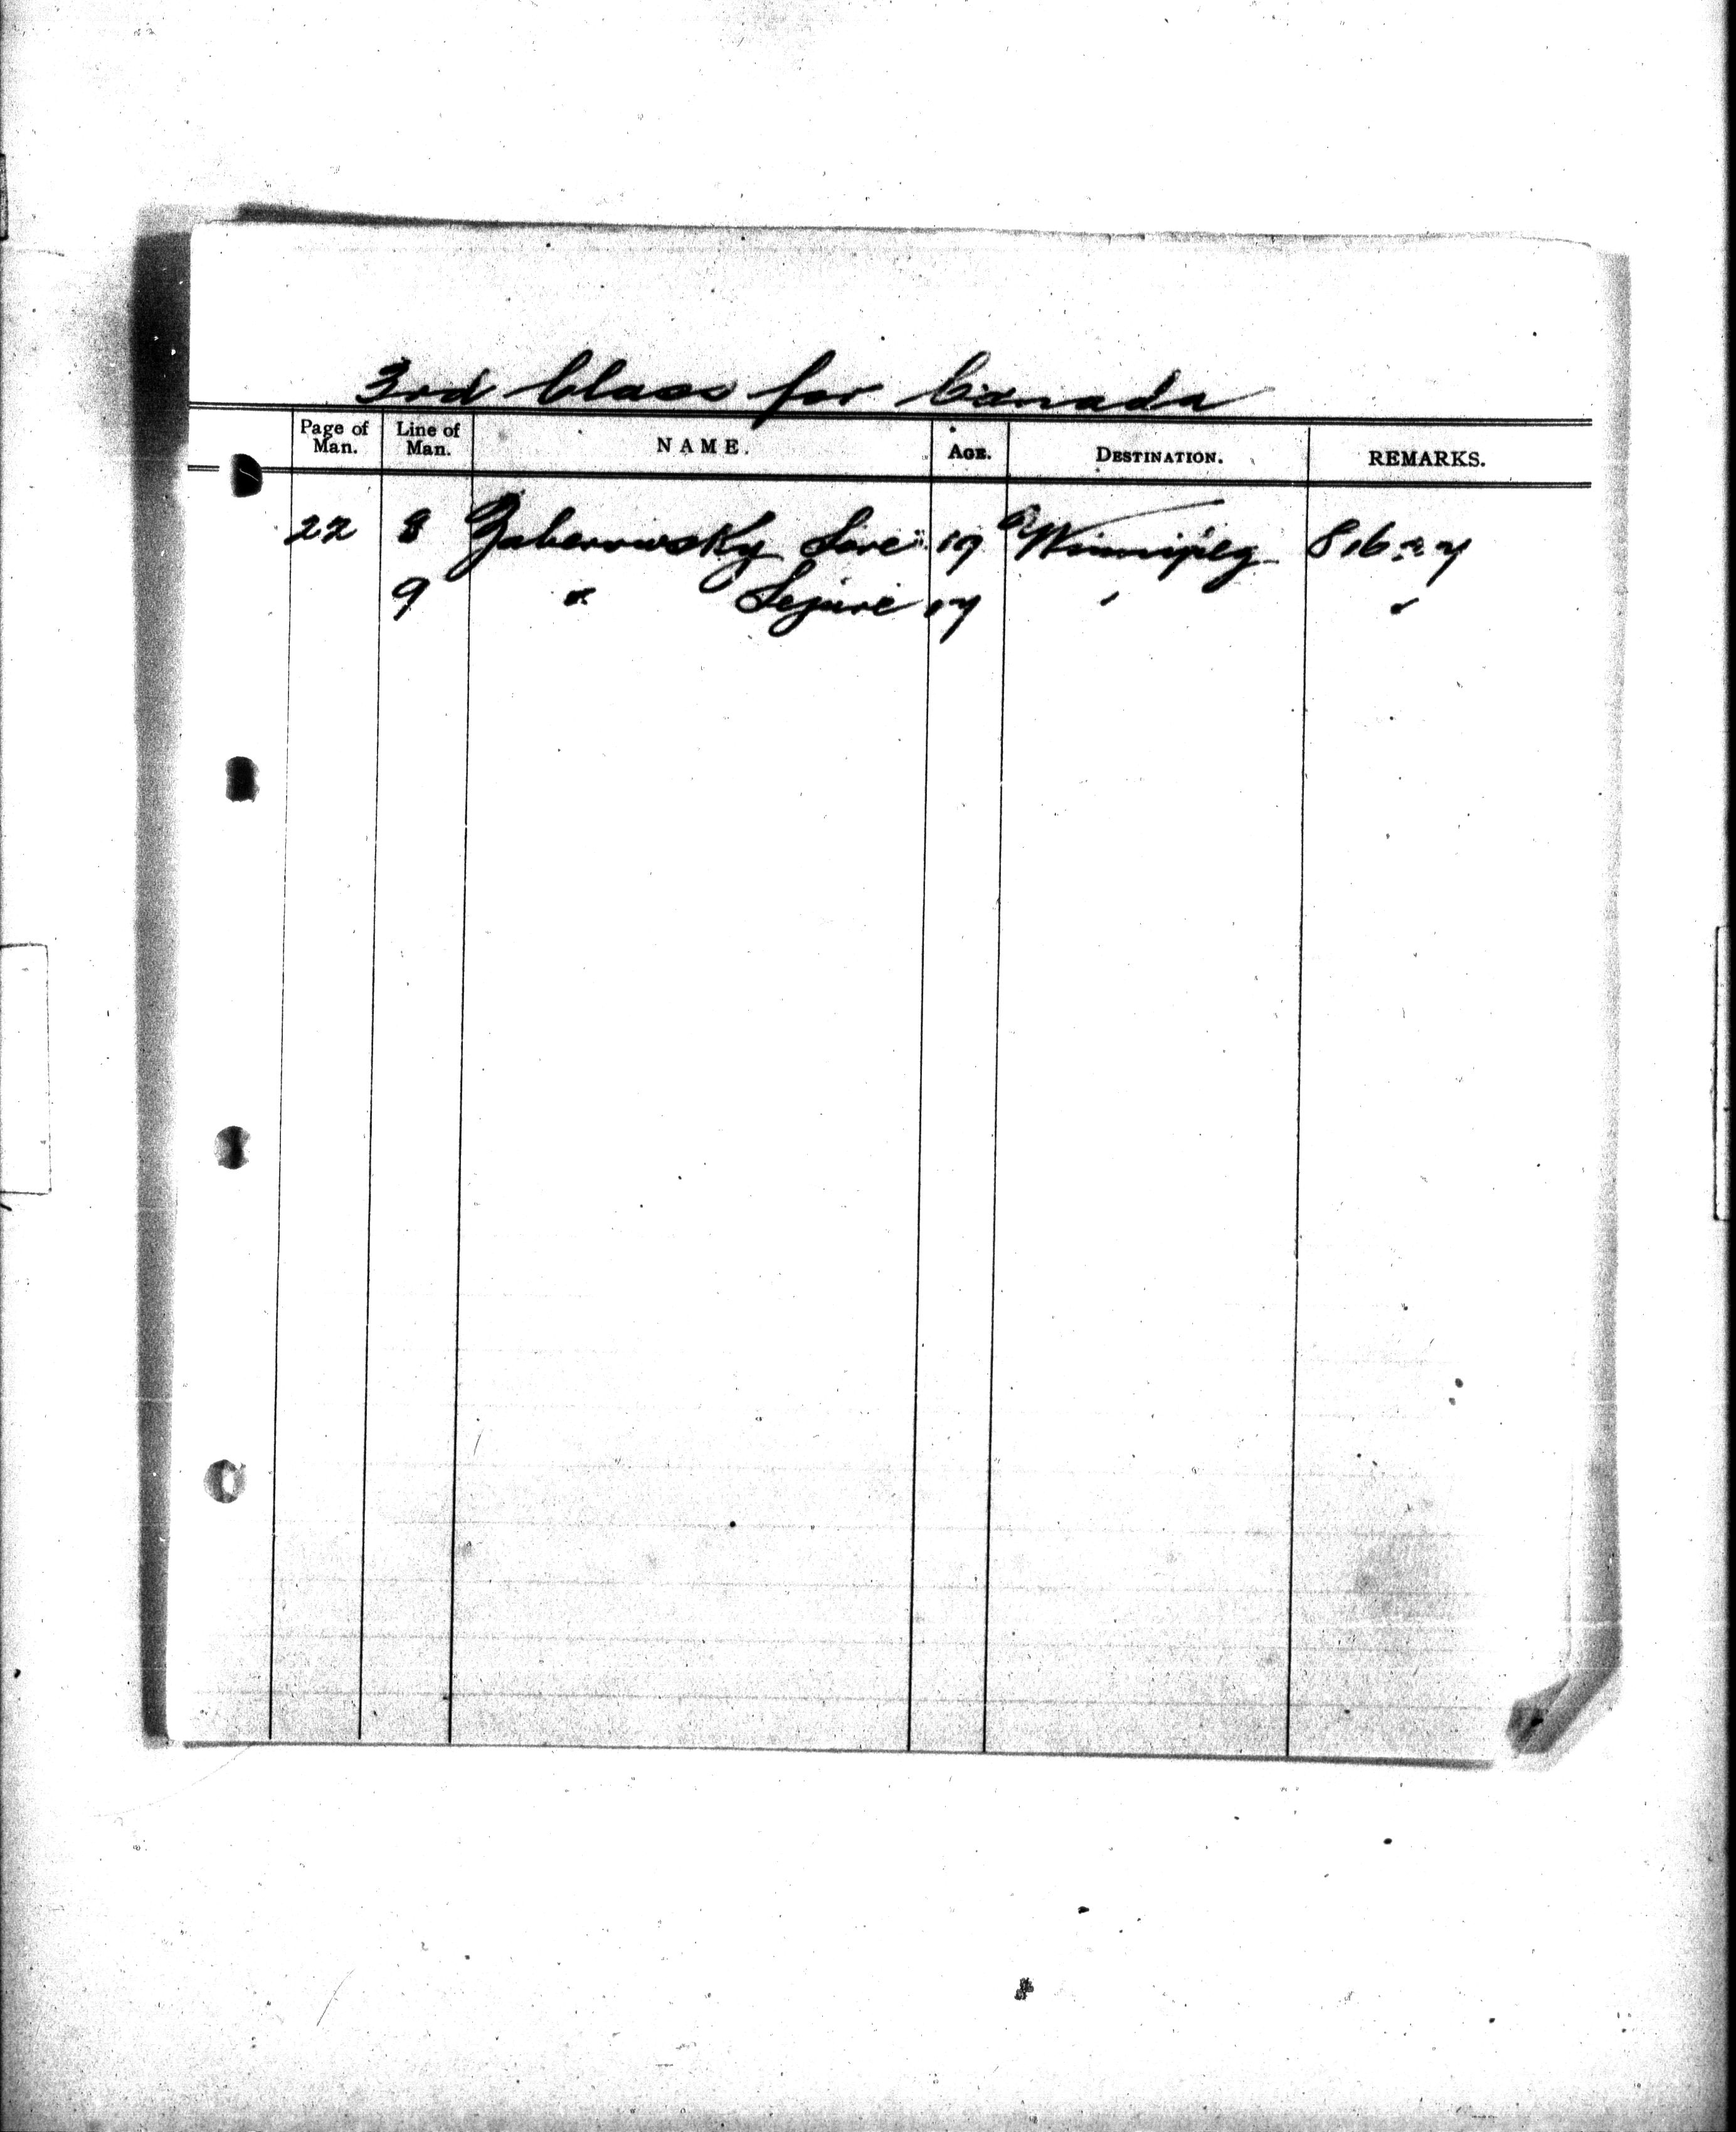 3rd Class for Canada
Page of Man. Line of Man. NAME. AGE. DESTINATION. REMARKS.
22 8 Zaberowsky Sore 19 Winnipeg
9 " Sejure 17 "  "